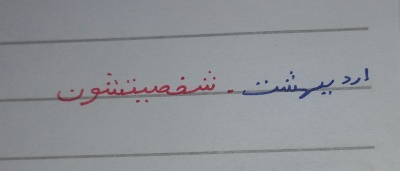 اردیبهشت - شخصیتشون